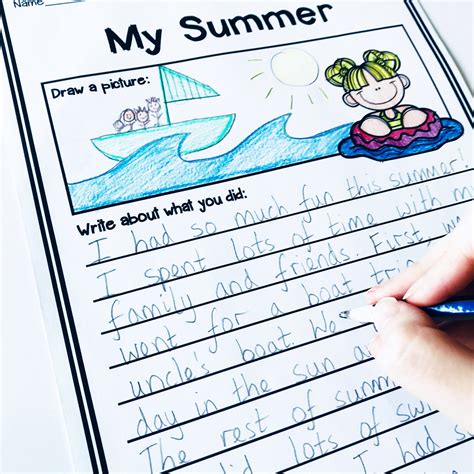 Name
My Summer
Draw a picture:
Write about what you did:
I had so much fun this summer!
I spent lots of time with
family and friends. First,
went for a boat
uncle's boat. We
day in the sun
The rest of
lots of